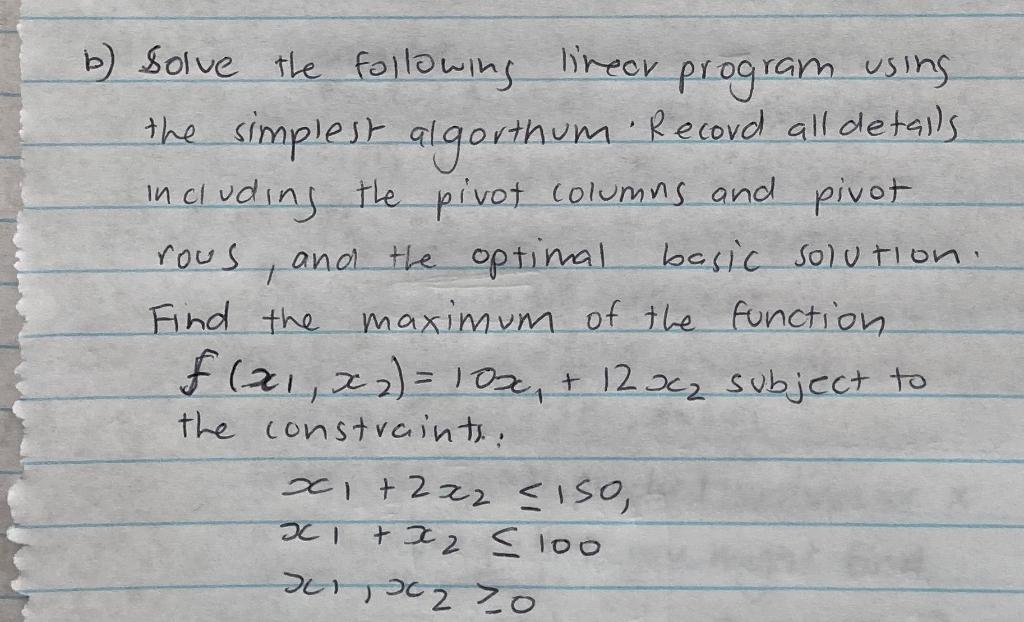 b) Solve the following linear program using
the simplest algorthum. Record all details
including the pivot columns and pivot
rows, and the optimal basic solution.
Find the maximum of the function
f(x₁, x₂) = 10x₁ + 12x₂ subject to
the constraints:
x₁ + 2x₂ ≤ 150,
x₁ + x₂ ≤ 100
x₁, x₂ ≥ 0